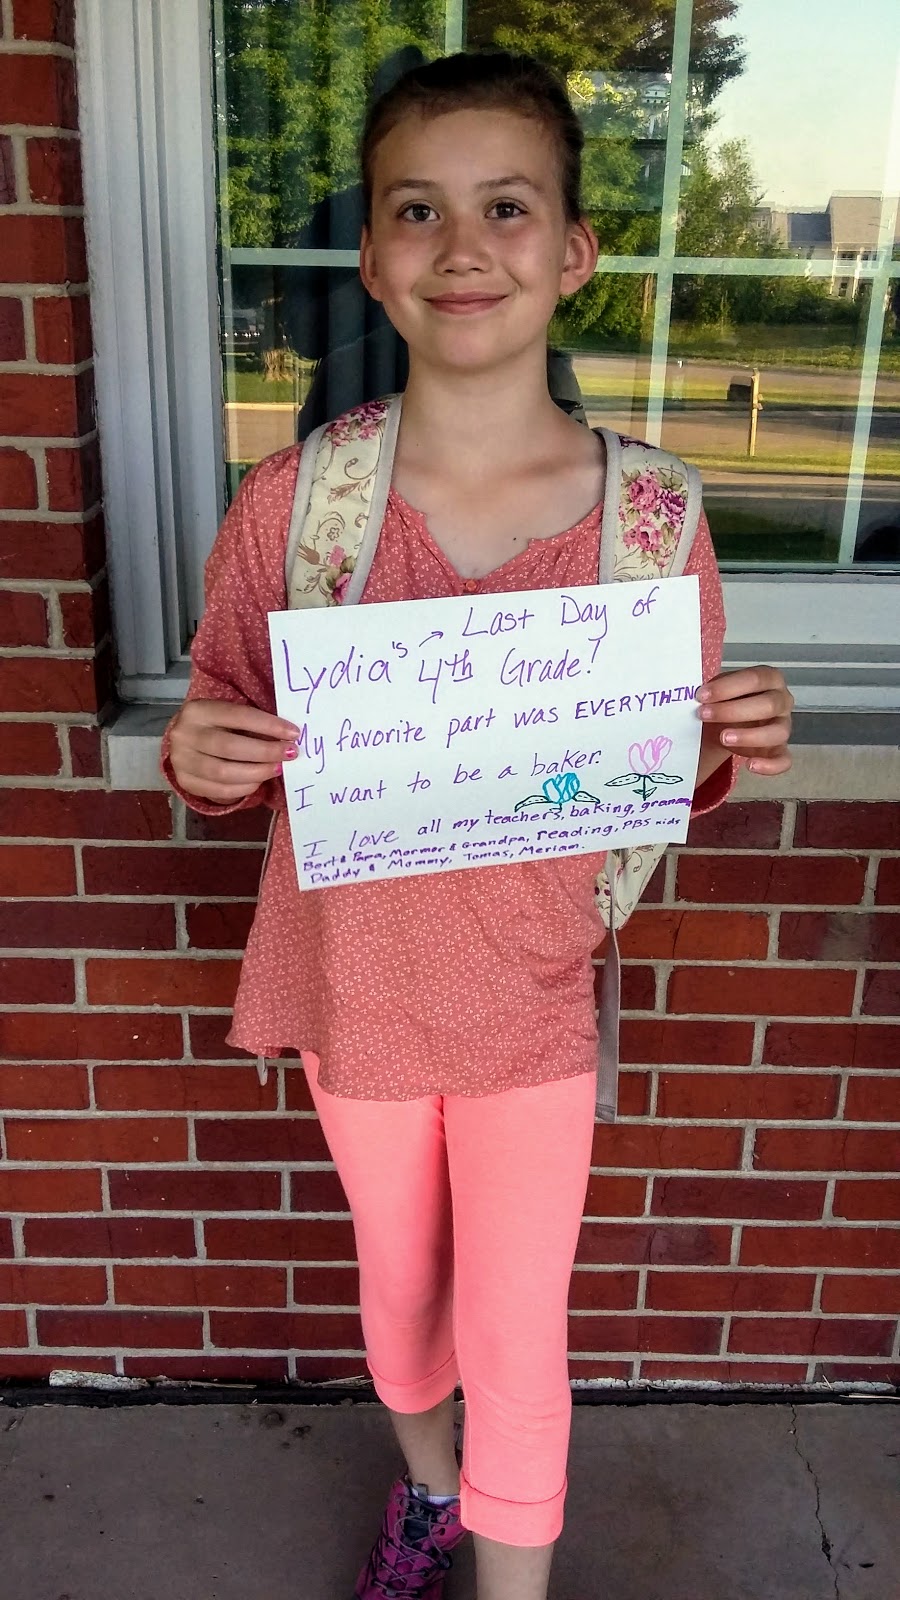 Lydia's → Last Day of
4th Grade!
My favorite part was EVERYTHING
I want to be a baker.
I love all my teachers, baking, grammy
Bert & Papa, Mormor & Grandpa, reading, PBS kids
Daddy & Mommy, Tomas, Meriam.